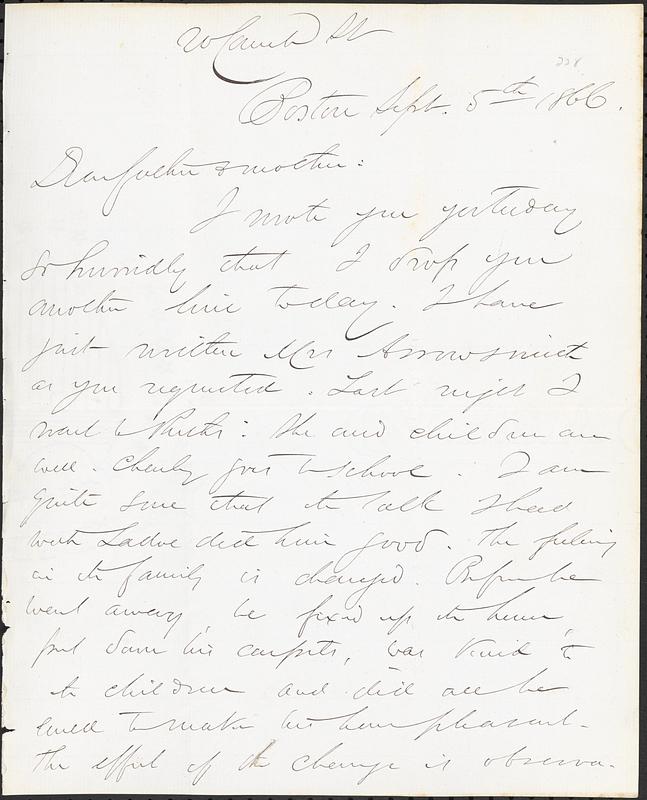 20 Camb St
228
Boston Sept. 5th 1866.
Dear father & mother:
I wrote you yesterday
so hurriedly that I drop you
another line today. I have
just written Mrs Arrowsmith
as you requested. Last night I
went to Ruth's: she and children are
well. Charley goes to school. I am
quite sure that the talk I had
with did him good. The feeling
in the family is changed. Before he
went away, he fixed up the house,
put down his carpets, was kind to
the children and did all he
could to make his home pleasant.
The effect of the change is observa-